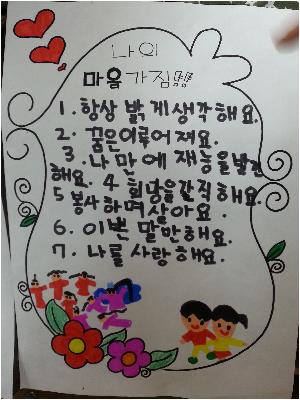 나의
마음가짐
1. 항상 밝게생각해요.
2. 꿈은이루어져요.
3. 나만에 재능을발견
해요. 4 희망을간직해요.
5 봉사하며살아요.
6. 이쁜 말만해요.
7. 나를 사랑해요.